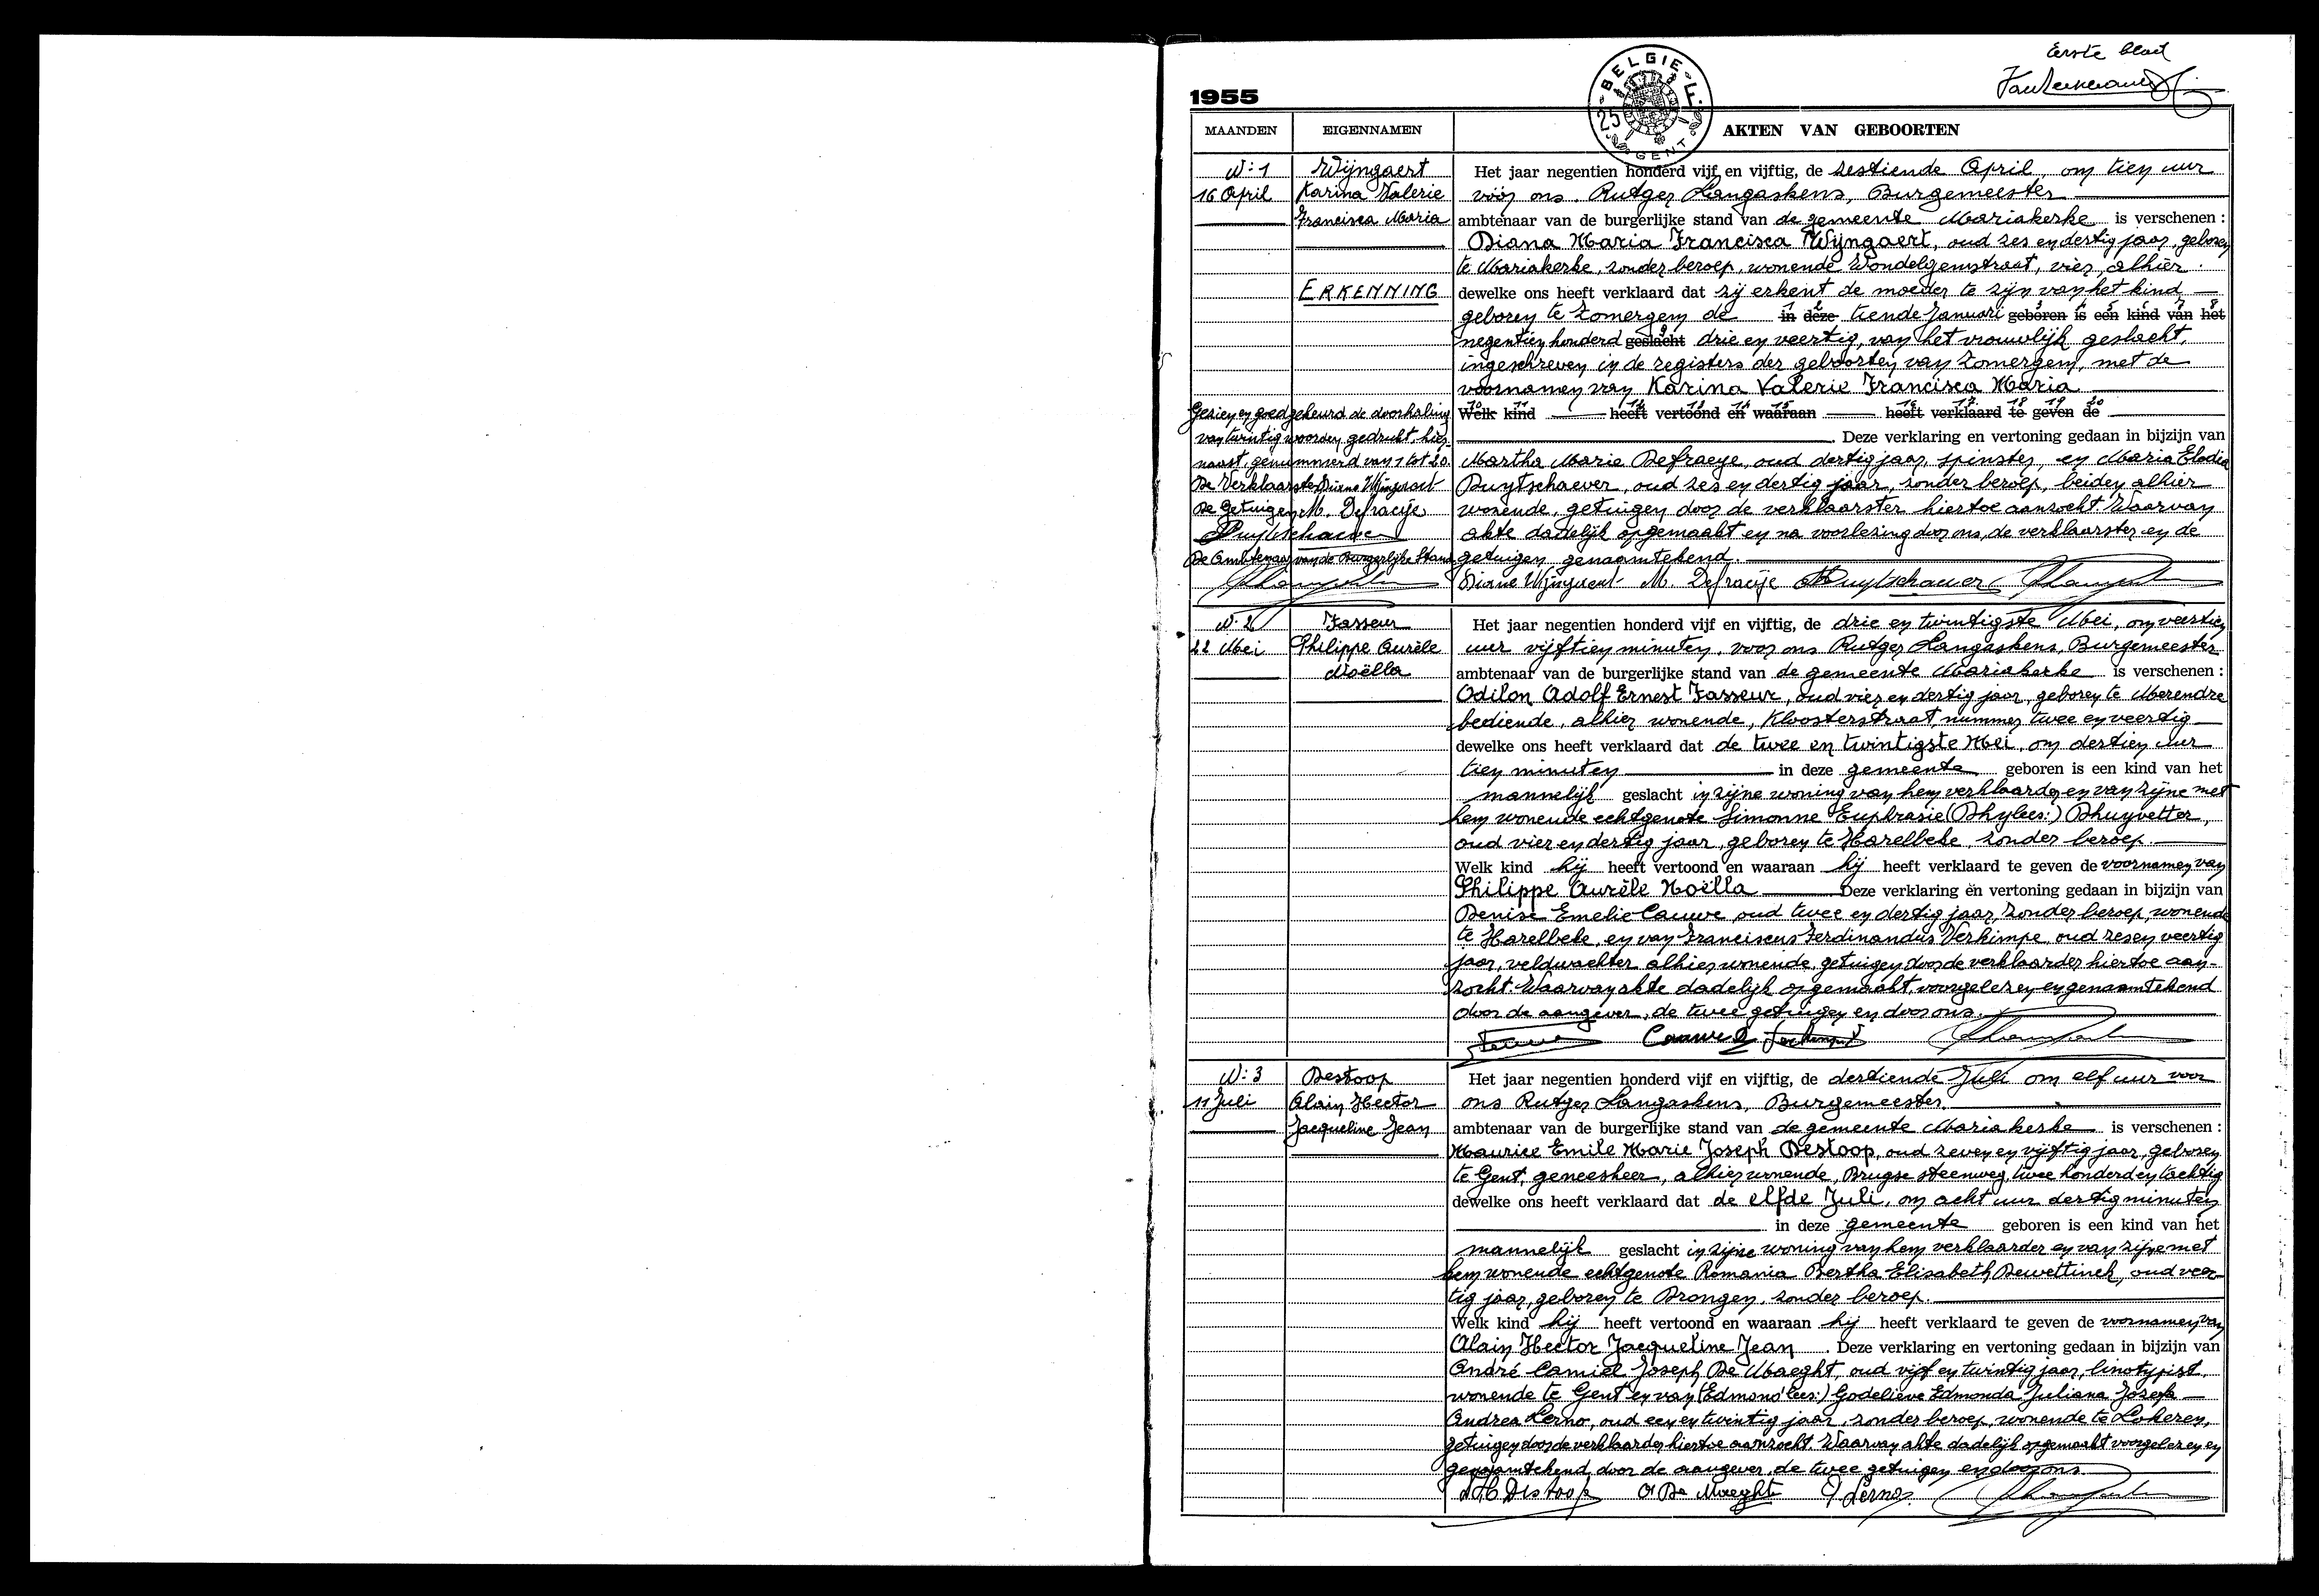 Eerste blad
1955
BELGIE F.
25
GENT
MAANDEN EIGENNAMEN AKTEN VAN GEBOORTEN
N: 1
16 April
Wijngaert
Karina Valerie
Francisca Maria
ERKENNING
Het jaar negentien honderd vijf en vijftig, de zestiende April, om tien uur
voor ons. Rutger Langaskens, Burgemeester
ambtenaar van de burgerlijke stand van de gemeente Mariakerke is verschenen :
Diana Maria Francisca Wijngaert, oud zes en dertig jaar, geboren
te Mariakerke, zonder beroep, wonende Wondelgemstraat, vier, alhier.
dewelke ons heeft verklaard dat zij erkent de moeder te zijn van het kind
geboren te Zomergem de in deze tiende Januari geboren is een kind van het
negentien honderd geslacht drie en veertig, van het vrouwlijk geslacht,
ingeschreven in de registers der geboorten van Zomergem, met de
voornamen van Karina Valerie Francisca Maria
Welk kind heeft vertoond en waaraan heeft verklaard te geven de
Deze verklaring en vertoning gedaan in bijzijn van
Martha Marie Defraeye, oud dertig jaar, spinster, en Maria Elodia
Buytschaever, oud zes en dertig jaar, zonder beroep, beiden alhier
wonende, getuigen door de verklaarster hiertoe aanzocht. Waarvan
akte dadelijk opgemaakt en na voorlezing door ons, de verklaarster en de
getuigen genaamtekend.
Diane Wijngaert M. Defraeije
Gezien en goedgekeurd de doorhaling
van twintig woorden gedrukt, hier-
naast, genummerd van 1 tot 20.
De Verklaarster Diane Wijngaert
De getuigen M. Defraeije
De Ambtenaar van de Burgerlijke Stand
N: 2
22 Mei
Fasseur
Philippe Aurèle
Noëlla
Het jaar negentien honderd vijf en vijftig, de drie en twintigste Mei, om veertien
uur vijftien minuten, voor ons Rutger Langaskens, Burgemeester
ambtenaar van de burgerlijke stand van de gemeente Mariakerke is verschenen :
Odilon Adolf Ernest Fasseur, oud vier en dertig jaar, geboren te Merendre
bediende, alhier wonende, Kloosterstraat, nummer twee en veertig
dewelke ons heeft verklaard dat de twee en twintigste Mei, om dertien uur
tien minuten in deze gemeente geboren is een kind van het
mannelijk geslacht in zijne woning van hem verklaarder en van zijne met
hem wonende echtgenote Simonne Euphrasie (Dhy lees:) Dhuyvetter,
oud vier en dertig jaar, geboren te Harelbeke, zonder beroep.
Welk kind hij heeft vertoond en waaraan hij heeft verklaard te geven de voornamen van
Philippe Aurèle Noëlla Deze verklaring en vertoning gedaan in bijzijn van
Denise Emelie Cauwe oud twee en dertig jaar, zonder beroep, wonende
te Harelbeke, en van Franciscus Ferdinandus Verkimpe, oud zes en veertig
jaar, veldwachter alhier wonende, getuigen door de verklaarder hiertoe aan-
zocht. Waarvan akte dadelijk opgemaakt, voorgelezen en genaamtekend
door de aangever, de twee getuigen en door ons.
N: 3
11 Juli
Destoop
Alain Hector
Jacqueline Jean
Het jaar negentien honderd vijf en vijftig, de dertiende Juli om elf uur voor
ons Rutger Langaskens, Burgemeester.
ambtenaar van de burgerlijke stand van de gemeente Mariakerke is verschenen :
Maurice Emile Marie Joseph Destoop, oud zeven en vijftig jaar, geboren
te Gent, geneesheer, alhier wonende, Brugse steenweg, twee honderd en tachtig
dewelke ons heeft verklaard dat de elfde Juli, om acht uur dertig minuten
in deze gemeente geboren is een kind van het
mannelijk geslacht in zijne woning van hem verklaarder en van zijne met
hem wonende echtgenote Romania Bertha Elisabeth Dewettinck, oud veer-
tig jaar, geboren te Drongen, zonder beroep.
Welk kind hij heeft vertoond en waaraan hij heeft verklaard te geven de voornamen van
Alain Hector Jacqueline Jean. Deze verklaring en vertoning gedaan in bijzijn van
André Camiel Joseph De Maeght, oud vijf en twintig jaar, linotypist,
wonende te Gent en van (Edmond lees:) Godelieve Edmonda Juliana Josepha
Andrea Lerno, oud een en twintig jaar, zonder beroep, wonende te Lokeren,
getuigen door de verklaarder hiertoe aanzocht. Waarvan akte dadelijk opgemaakt voorgelezen en
genaamtekend door de aangever, de twee getuigen en door ons.
Destoop A De Maeght G Lerno